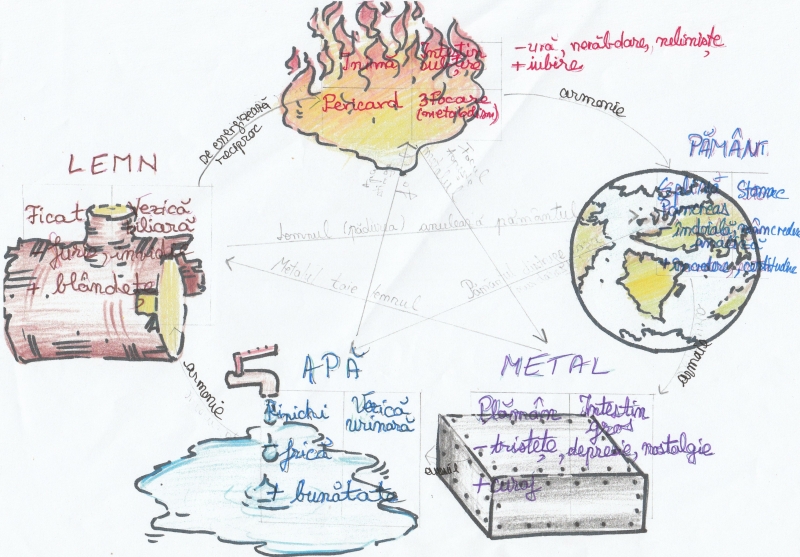 Inimă
Intestin
subțire
- ură, nerăbdare, neliniște
+ iubire
Pericard
3 Focare
(metabolism)
De energizează
reciproc
armonie
LEMN
Ficat
Vezică
biliară
- furie, invidie
+ blândețe
PĂMÂNT
Splină
Pancreas
Stomac
- îndoială, neîncredere
+ încredere, certitudine
lemnul (pădurea) anulează pământul
Metalul taie lemnul
armonie
armonie
APĂ
Rinichi
Vezică
urinară
- frică
+ bunătate
METAL
Plămân
Intestin
gros
- tristețe, depresie, nostalgie
+ curaj